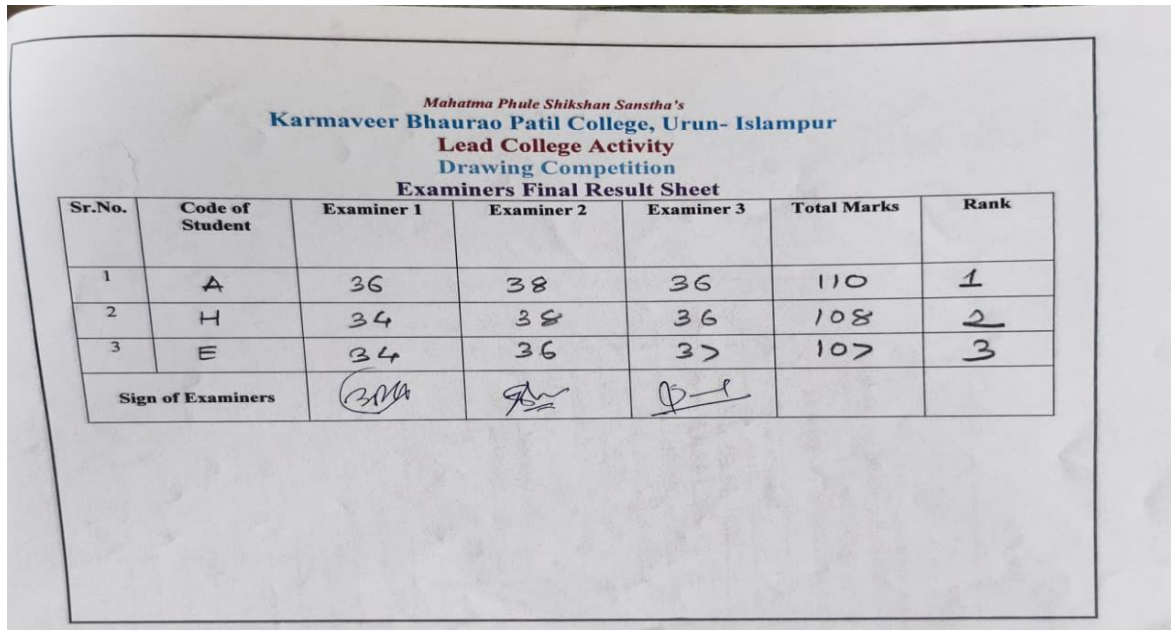 Mahatma Phule Shikshan Sanstha's
Karmaveer Bhaurao Patil College, Urun- Islampur
Lead College Activity
Drawing Competition
Examiners Final Result Sheet
Sr.No. Code of Student Examiner 1 Examiner 2 Examiner 3 Total Marks Rank
1 A 36 38 36 110 1
2 H 34 38 36 108 2
3 E 34 36 37 107 3
Sign of Examiners